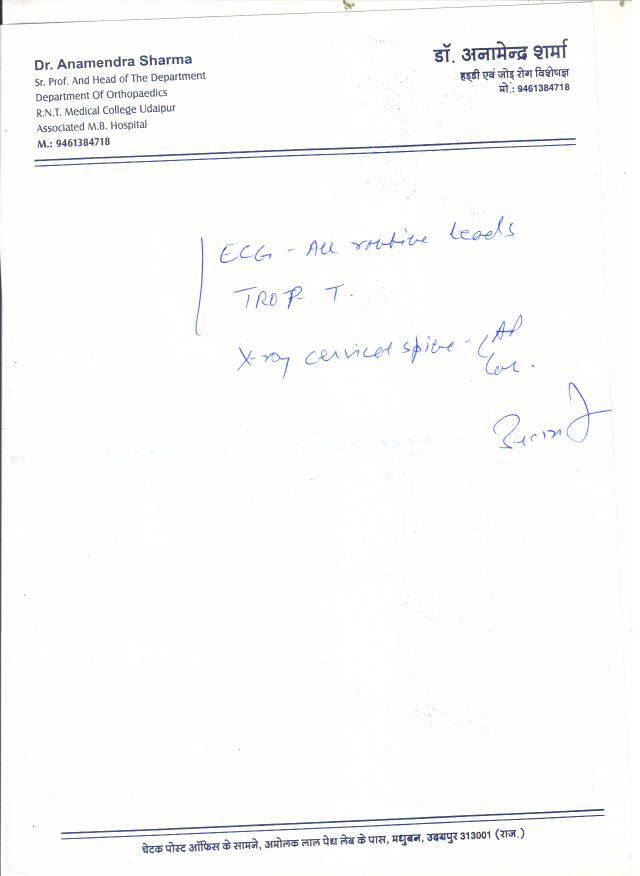 Dr. Anamendra Sharma
Sr. Prof. And Head of The Department
Department Of Orthopaedics
R.N.T. Medical College Udaipur
Associated M.B. Hospital
M.: 9461384718
डॉ. अनामेन्द्र शर्मा
हड्डी एवं जोड़ रोग विशेषज्ञ
मो.: 9461384718
ECG - All routine leads
TROP T.
X-ray cervical spine - AP
Lat.
चेटक पोस्ट ऑफिस के सामने, अमोलक लाल पेथ लेब के पास, मधुबन, उदयपुर 313001 (राज.)